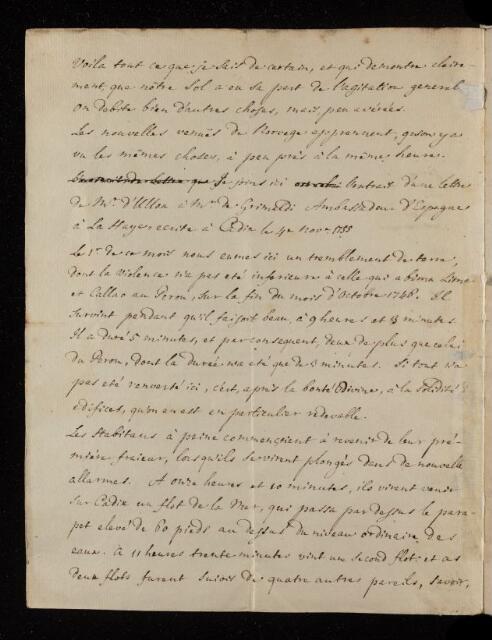 Voila tout ce que je sais de certain, et qui demontre claire-
ment, que nôtre Sol a eu sa part de l'agitation general
On debite bien d'autres choses, mais peu averées.
Les nouvelles venuës de Norvege apprennent, qu'on y a
vu les mêmes choses, à peu près à la même heure.
Je joins ici l'extrait d'une lettre
de Mr. d'Ulloa à Mr. de Grimaldi Ambassadeur d'Espagne
à La Haye ecrite à Cadix le 4e Nov. 1755
Le 1r de ce mois nous eumes ici un tremblement de terre,
dont la violence n'a pas eté inferieure à celle qui a Lima
et Callao au Perou, sur la fin du mois d'Octobre 1746. Il
survint pendant qu'il faisoit beau, à 9 heures et 3 minutes.
Il a duré 5 minutes, et par consequent, deux de plus que celui
du Perou, dont la durée n'a eté que de 3 minutes. Si tout n'a
pas eté renversé ici, c'est, après la bonté Divine, à la solidité
edifices, qu'on en est en particulier redevable.
Les Habitans à peine commençoient à revenir de leur pré-
miere fraieur, lorsqu'ils se virent plongés dans de nouvelles
allarmes. A onze heures et 10 minutes, ils virent venir
sur Cadix un flot de la Mer, qui passa par dessus le para-
pet elevé de 60 pieds au dessus du niveau ordinaire des
eaux. à 11 heures trente minutes vint un second flot: et ces
deux flots furent suivis de quatre autres pareils, savoir,